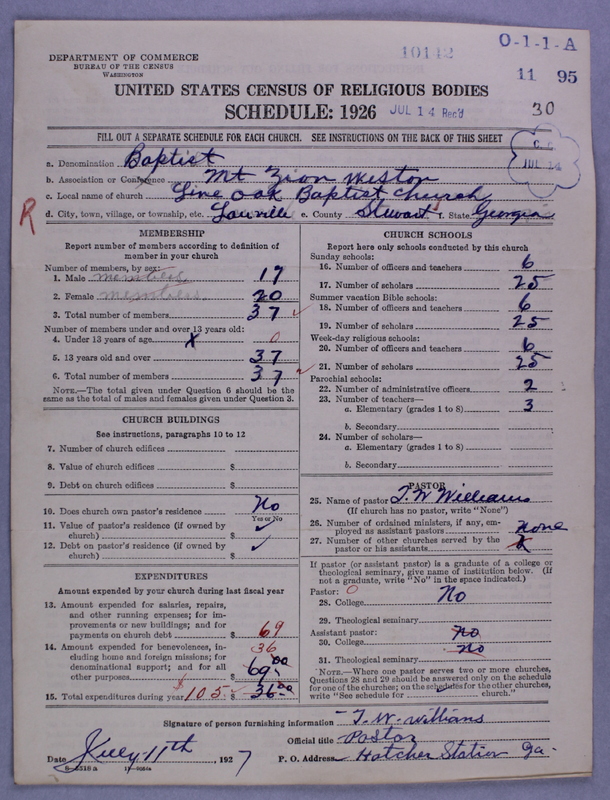 DEPARTMENT OF COMMERCE
BUREAU OF THE CENSUS
WASHINGTON
10142
O-1-1-A
11 95
UNITED STATES CENSUS OF RELIGIOUS BODIES
SCHEDULE: 1926
JUL 14 Rec'd
30
FILL OUT A SEPARATE SCHEDULE FOR EACH CHURCH. SEE INSTRUCTIONS ON THE BACK OF THIS SHEET
JUL 14
a. Denomination Baptist
b. Association or Conference Mt Zion Weston
c. Local name of church Line oak Baptist Church
d. City, town, village, or township, etc. Louville e. County Stewart f. State Georgia
R
MEMBERSHIP
Report number of members according to definition of
member in your church
Number of members, by sex:
1. Male members 17
2. Female members 20
3. Total number of members 37
Number of members under and over 13 years old:
4. Under 13 years of age X 0
5. 13 years old and over 37
6. Total number of members 37
NOTE.—The total given under Question 6 should be the
same as the total of males and females given under Question 3.
CHURCH BUILDINGS
See instructions, paragraphs 10 to 12
7. Number of church edifices
8. Value of church edifices $
9. Debt on church edifices $
10. Does church own pastor's residence No
Yes or No
11. Value of pastor's residence (if owned by
church) $
12. Debt on pastor's residence (if owned by
church) $
EXPENDITURES
Amount expended by your church during last fiscal year
13. Amount expended for salaries, repairs,
and other running expenses; for im-
provements or new buildings; and for
payments on church debt $ 69
14. Amount expended for benevolences, in- 36
cluding home and foreign missions; for
denominational support; and for all
other purposes $ 69.00
15. Total expenditures during year $105 $ 36.00
CHURCH SCHOOLS
Report here only schools conducted by this church
Sunday schools:
16. Number of officers and teachers 6
17. Number of scholars 25
Summer vacation Bible schools:
18. Number of officers and teachers 6
19. Number of scholars 25
Week-day religious schools:
20. Number of officers and teachers 6
21. Number of scholars 25
Parochial schools:
22. Number of administrative officers 2
23. Number of teachers—
a. Elementary (grades 1 to 8) 3
b. Secondary
24. Number of scholars—
a. Elementary (grades 1 to 8)
b. Secondary
PASTOR
25. Name of pastor T. W Williams
(If church has no pastor, write "None")
26. Number of ordained ministers, if any, em-
ployed as assistant pastors none
27. Number of other churches served by the
pastor or his assistants
If pastor (or assistant pastor) is a graduate of a college or
theological seminary, give name of institution below. (If
not a graduate, write "No" in the space indicated.)
Pastor: 0
28. College No
29. Theological seminary
Assistant pastor: No
30. College No
31. Theological seminary
NOTE.—Where one pastor serves two or more churches,
Questions 28 and 29 should be answered only on the schedule
for one of the churches; on the schedules for the other churches,
write "See schedule for church."
Signature of person furnishing information T. W. Williams
Official title Pastor
Date July 11th, 1927 P. O. Address Hatcher Station Ga.